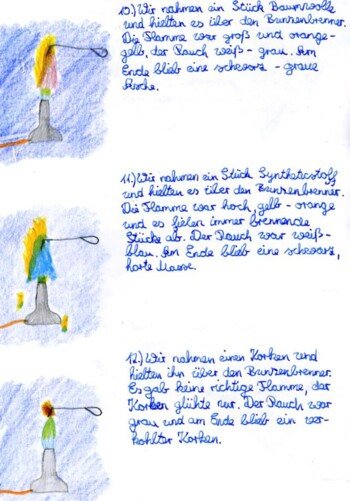 10) Wir nahmen ein Stück Baumwolle
und hielten es über den Bunsenbrenner.
Die Flamme war groß und orange-
gelb, der Rauch weiß - grau. Am
Ende blieb eine schwarz - graue
Asche.
11) Wir nahmen ein Stück Syntheticstoff
und hielten es über den Bunsenbrenner.
Die Flamme war hoch, gelb - orange
und es fielen immer brennende
Stücke ab. Der Rauch war weiß-
blau. Am Ende blieb eine schwarz,
harte Masse.
12) Wir nahmen einen Korken und
hielten ihn über den Bunsenbrenner.
Es gab keine richtige Flamme, der
Korken glühte nur. Der Rauch war
grau und am Ende blieb ein ver-
kohlter Korken.